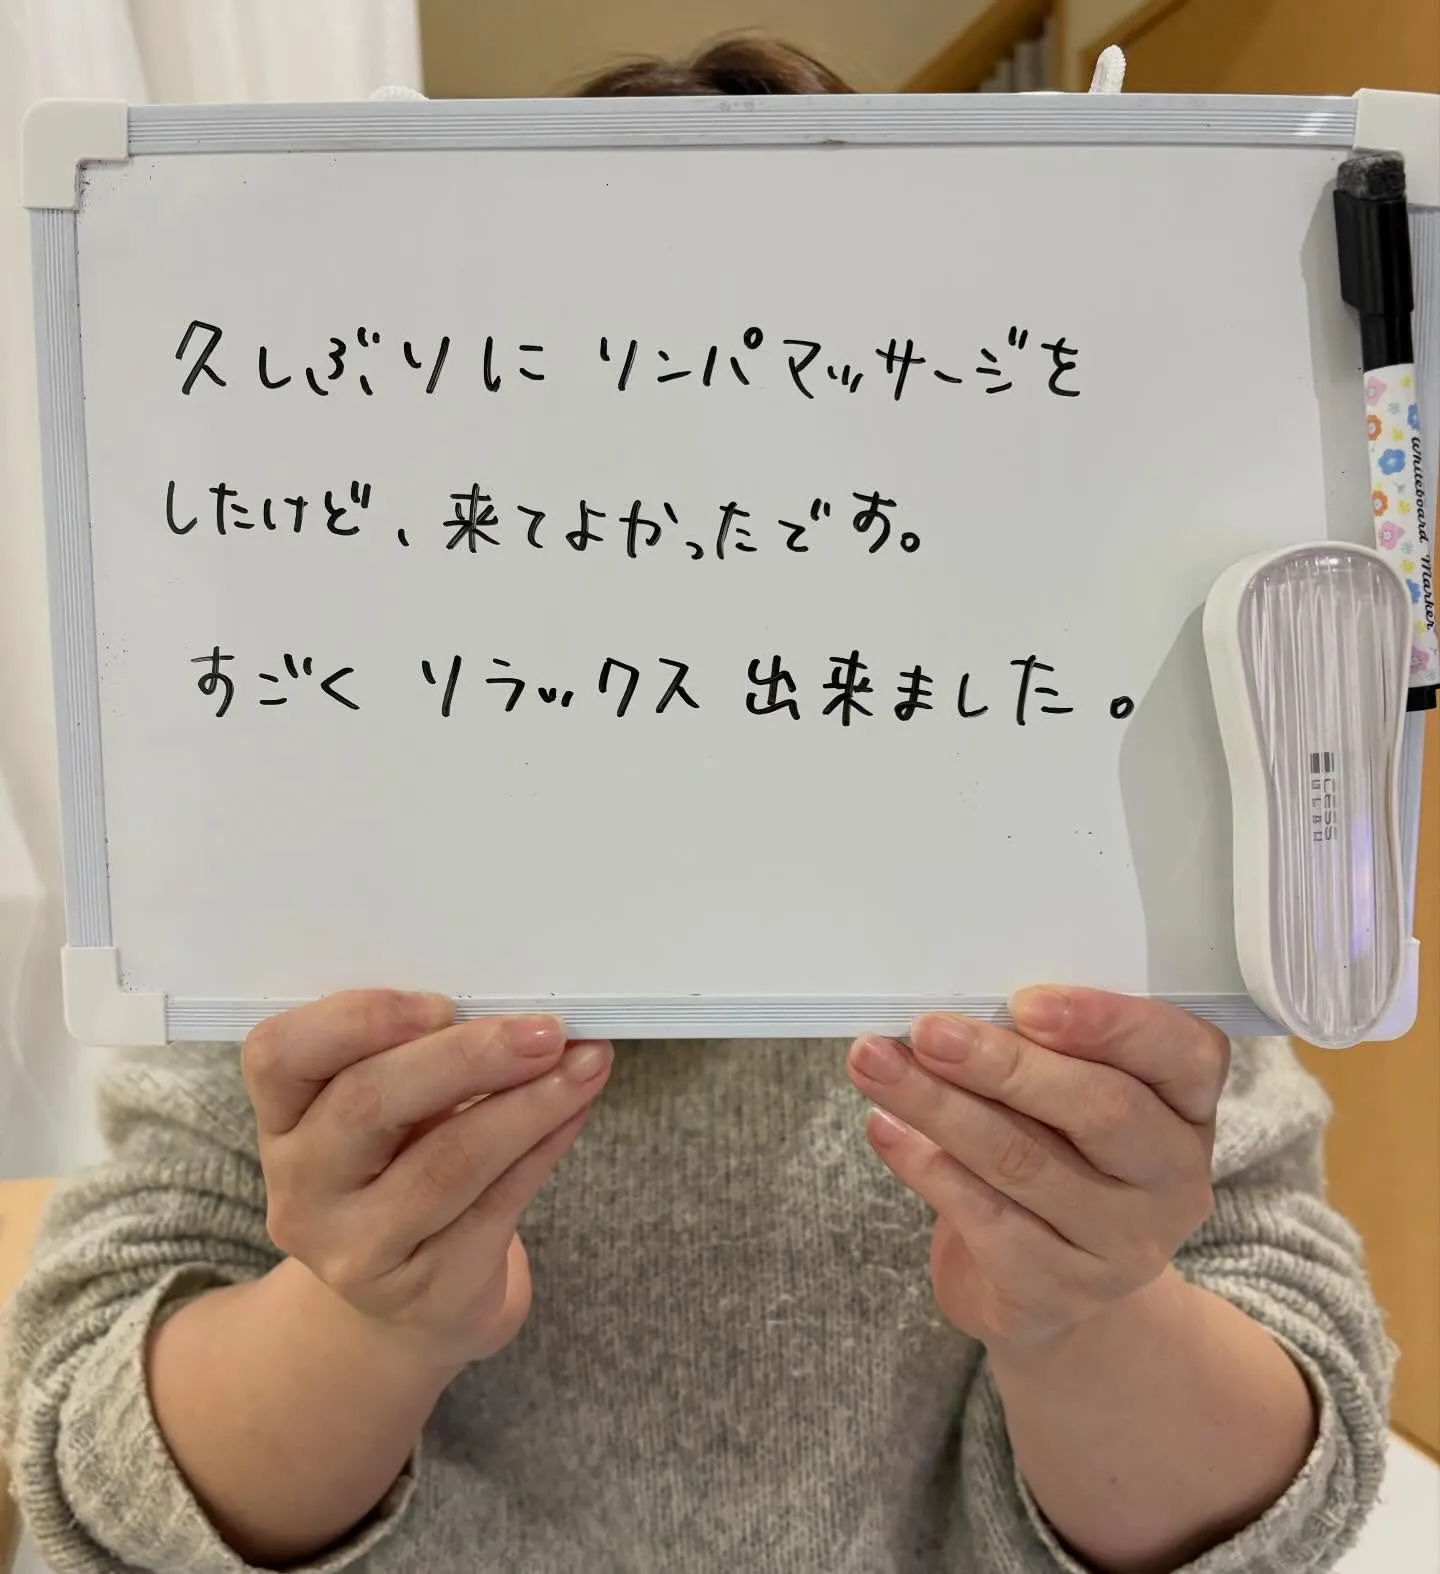 久しぶりに リンパマッサージを
したけど、来てよかったです。
すごく リラックス 出来ました。
Whiteboard Marker